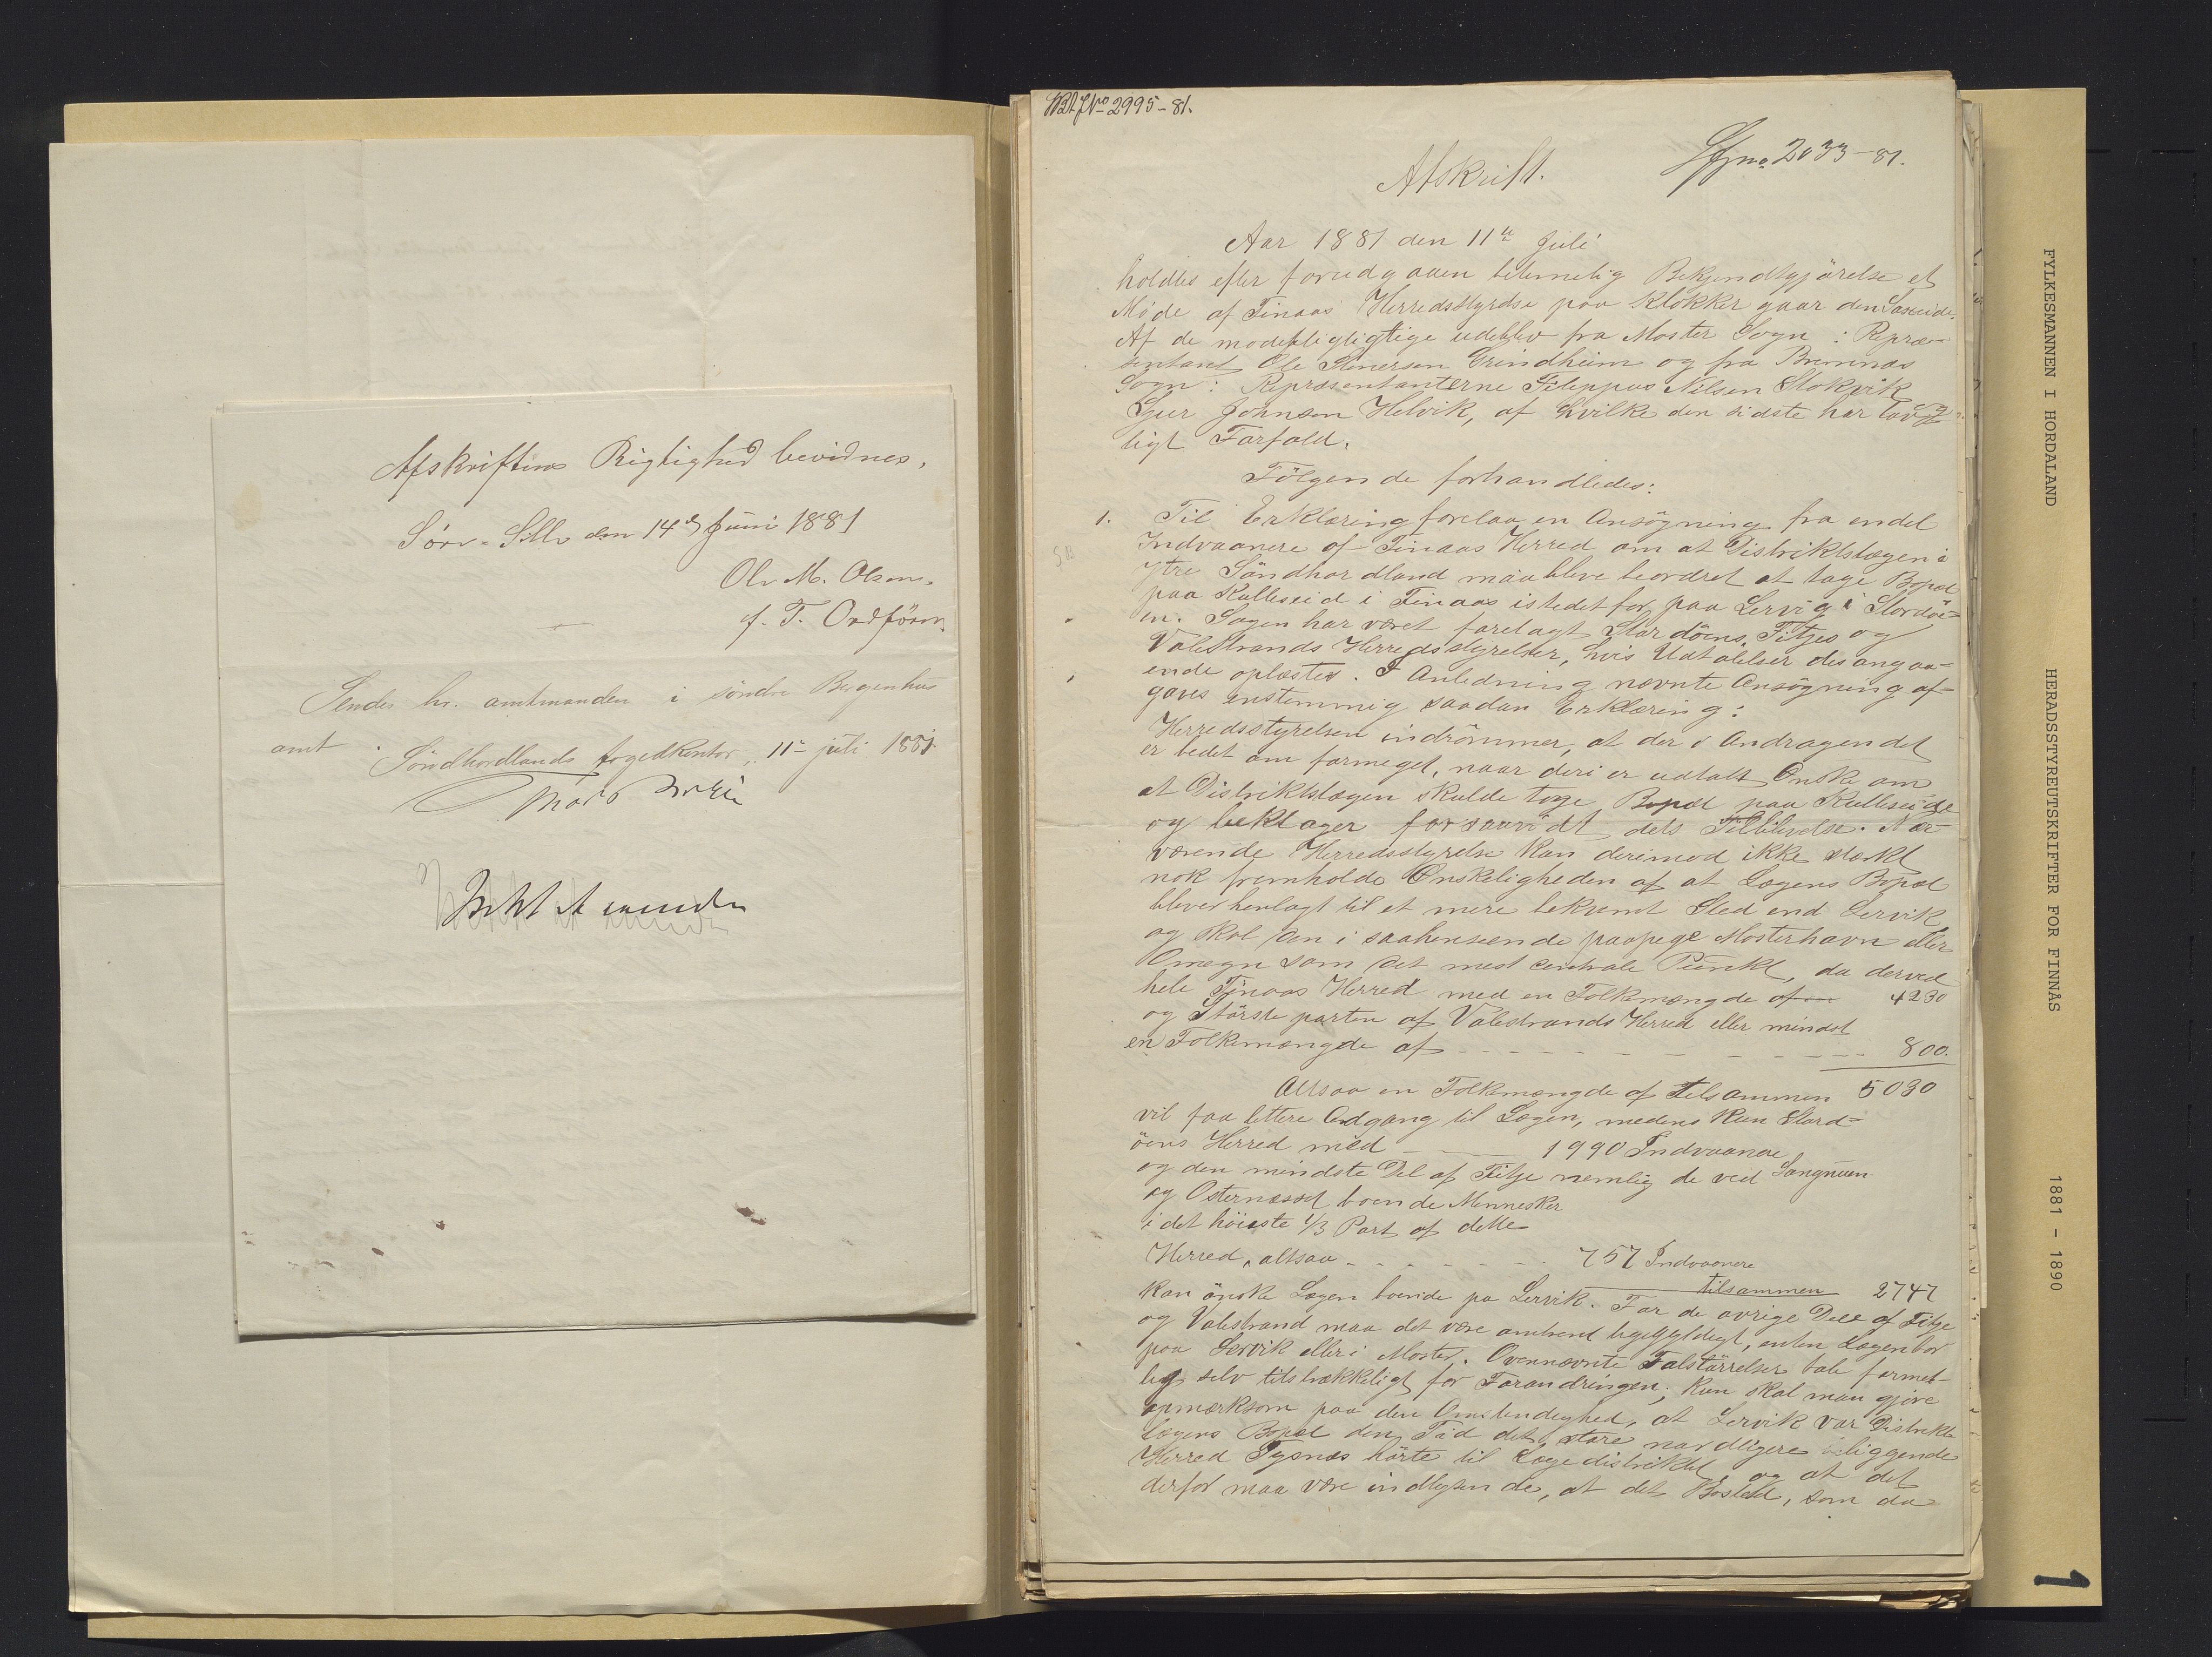 Afskriftens Rigtighed bevidnes,
Sörv-Sille den 14de Juni 1881
Ole M. Olsen.
f. T. Ordförer.
Sendes hr. amtmanden i söndre Bergenhus
amt.
Söndhordlands fogedkontor, 11te juli 1881.
No 2995-81.
No 2033-81.
Afskrift.
Aar 1881 den 11te Juli
holdtes efter forudgaaen betimelig Bekjendtgjörelse et
Möde af Finaas Herredsstyrelse paa Klokkergaarden Saxeide.
Af de modepligtigtige udeblev fra Moster Sogn: Repræ-
sentant Ole Steinersen Grindheim og fra Bremnæs
Sogn: Repræsentanterne Filippus Nilsen Stokvik
Gur Johnson Helvik, af hvilke den sidste har lov-
ligt Forfald.
Fölgende forhandledes:
1. Til Erklæring forelaa en Ansögning fra endel
Indvaanere af Finaas Herred om at Distriktslægen i
ytre Söndhordland maa blive beordret at tage Bopæl
paa Kulleseid i Finaas istedetfor paa Lervig i Stordö-
en. Sagen har været forelagt Stordöens, Fitjes og
Valestrands Herredsstyrelser, hvis Udtalelser desangaa-
ende oplæstes. I Anledning nævnte Ansögning af-
gaves enstemmig saadan Erklæring:
Herredsstyrelsen indrömmer, at der i Andragendet
er bedet om formeget, naar deri er udtalt Önske om
at Distriktslægen skulde tage Bopæl paa Kulleseide
og beklager forsaavidt dets Tilblivelse. Nær-
værende Herredsstyrelse kan derimod ikke stærkt
nok fremholde Önskeligheden af at Lægens Bopæl
bliver henlagt til et mere bekvemt Sted end Lervik
og skal den i saahenseende paapege Mosterhavn eller
Omegn som det mest centrale Punkt, da derved
hele Finaas Herred med en Folkemængde af 4230
og Störste parten af Valestrands Herred eller mindst
en Folkemængde af - - - - - - - - - 800.
Altsaa en Folkemængde af tilsammen 5030
vil faa lettere Adgang til Lægen, medens kun Stord-
öens Herred med - - - 1990 Indvaanere
og den mindste Del af Fitje nemlig de ved Langnuen
og Osternæsset boende Mennesker
i det höieste 1/3 Part af dette
Herred, altsaa - - - - - - 757 Indvaanere
tilsammen 2747
kan önske Lægen boende pa Lervik. For de övrige Dele af Fitje
og Valestrand maa det være omtrent ligegyldigt, enten Lægen bor
paa Lervik eller i Moster. Ovennævnte Talstörrelser tale forment-
lig selv tilstrækkeligt for Forandringen; kun skal man gjöre
opmærksom paa den Omstendighed, at Lervik var Distrikts-
lægens Bopæl den Tid det store nordligere beliggende
Herred Tysnæs hörte til Lægedistriktet, og at det
derfor maa være indlysende, at det Bosted, som da
FYLKESMANNEN I HORDALAND
HERADSSTYREUTSKRIFTER FOR FINNÅS
1881 - 1890
1